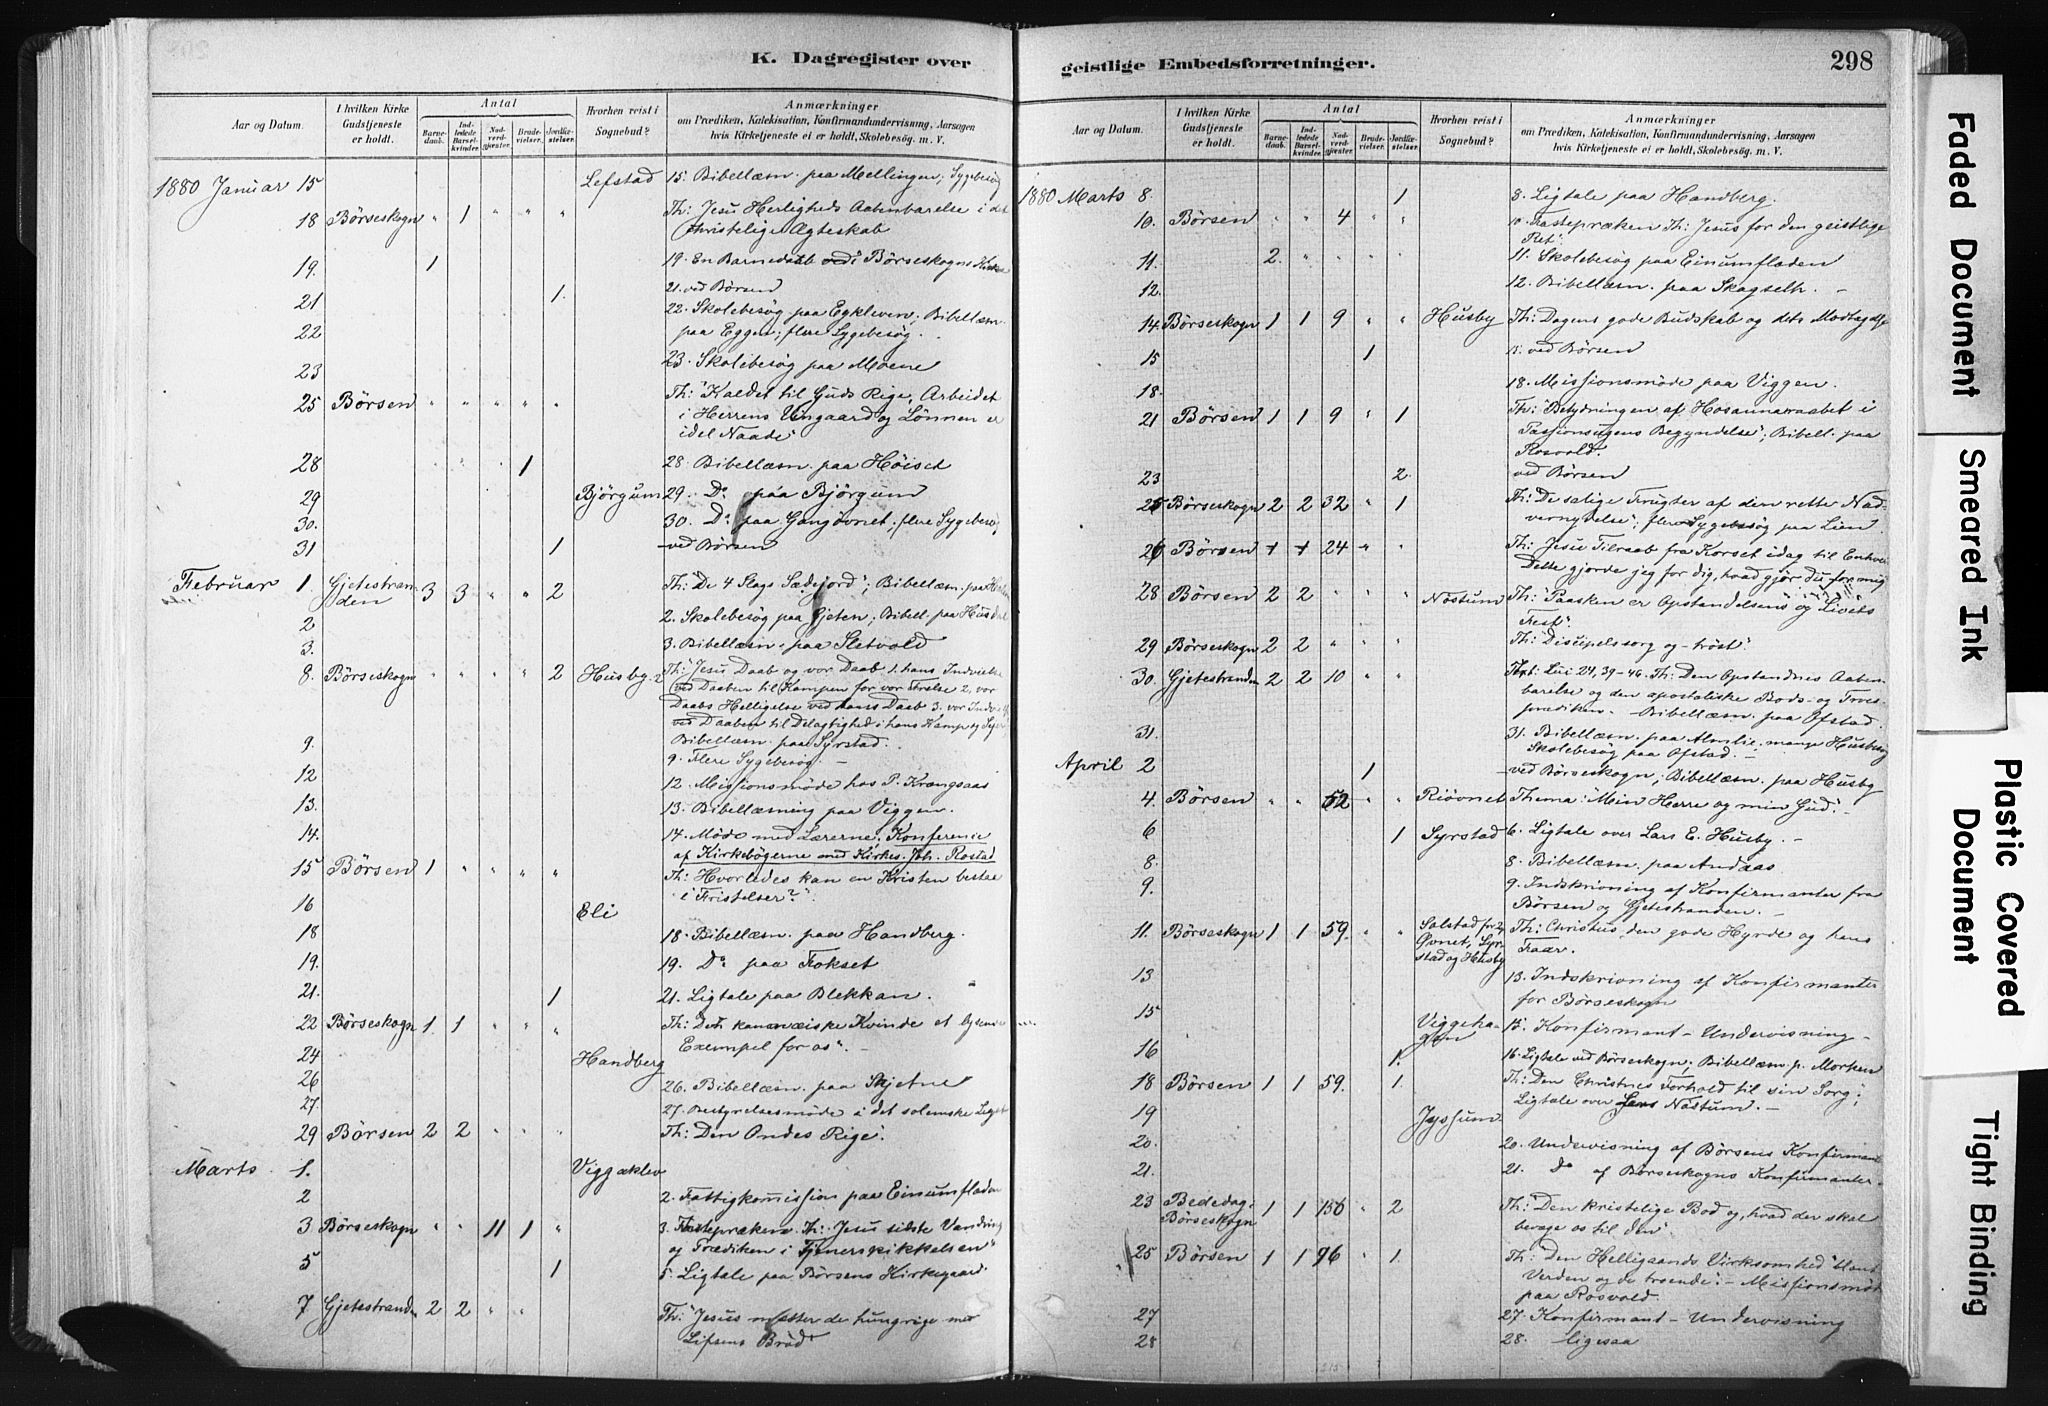 K. Dagregister over
Aar og Datum.
I hvilken Kirke Gudstjeneste er holdt.
Antal
Barnedaab.
Indledede Barselkvinder.
Nadverdgjæster.
Brudevielser.
Jordfæstelser.
Hvorhen reist i Sognebud?
Anmærkninger
om Prædiken, Katekisation, Konfirmandundervisning, Aarsagen
hvis Kirketjeneste ei er holdt, Skolebesøg. m. V.
1880 Januar 15 Lefstad 15. Bibellæsn. paa Mellingen; Sygebesøg
18 Børseskogn " 1 " " " Th: Jesu Herligheds Aabenbarelse i det
christelige Ægteskab
19. 1 19. En Barnedaab ved i Børseskogns Kirke
21 1. 21. ved Børsen
22 22. Skolebesøg paa Egkleven; Bibellæsn.
paa Eggen; flere Sygebesøg.
23 23. Skolebesøg paa Moene
25 Børsen " " " " " Th: "Kaldet til Guds Rige, Arbeidet
i Herrens Vingaard og Lønnen er
idel Naade"
28 1 28. Bibellæsn. paa Høiset
29 Bjørgum 29. Do paa Bjørgum
30. 30. Do paa Gangøvnet. flere Sygebesøg
31 1 ved Børsen
Februar 1. Gjetestranden 3 3 " " 2 Th: "De 4 Slags Sædejord"; Bibellæsn. paa
2 2. Skolebesøg paa Gjeten; Bibell. paa Husdal
3. 3. Bibellæsn. paa Sletvold
8. Børseskogn " " " " 2 Husby 2 Th: "Jesu Daab og vor Daab 1. hans Indvielse
ved Daaben til Kampen for vor Frelse 2. vor
Daabs Helligelse ved hans Daab 3. vor
ved Daaben til Delagtighed i hans Kamp og Seier
Bibellæsn. paa Syrstad.
9. 9. Flere Sygebesøg. –
12 12. Missionsmøde hos P. Krangsaas
13. 13. Bibellæsning paa Viggen.
14. 14. Møde med Lærerne; Konference
af Kirkebøgerne med Kirkes. Joh. Rostad
15 Børsen 1 " " " " Th: Hvorledes kan en Kristen bestaa
i Fristelser?".
16 Eli
18 18. Bibellæsn. paa Handberg.
19. 19. Do paa Fokset
21. 1 21. Ligtale paa Blekkan.
22 Børseskogn 1. 1 " " " Th: Den kananæiske Kvinde et lysende
Exempel for os". –
24 Handberg
26 26. Bibellæsn. paa Skjetne
27. 27. Bestyrelsesmøde i det solemske Legat
29 Børsen 2 2 " " " Th: Den Ondes Rige".
Marts 1. Viggaklev
2 2. Fattigkommission paa Einumfladen
3 Børseskogn " " 11 1 " 3. Fasteprækenen Th: Jesu sidste Vandring
og Prædiken i Tjenerskikkelsen"
5 1 5. Ligtale paa Børsens Kirkegaard.
7 Gjetestranden 2 2 " " Th: "Jesus mætter de hungrige med
Lifsens Brød
geistlige Embedsforretninger.
298
Aar og Datum.
I hvilken Kirke Gudstjeneste er holdt.
Antal
Barnedaab.
Indledede Barselkvinder.
Nadverdgjæster.
Brudevielser.
Jordfæstelser.
Hvorhen reist i Sognebud?
Anmærkninger
om Prædiken, Katekisation, Konfirmandundervisning, Aarsagen
hvis Kirketjeneste ei er holdt, Skolebesøg. m. V.
1880 Marts 8. 1 8. Ligtale paa Handberg.
10. Børsen " " 4 " " 10. Fastepræken Th: Jesus for den geistlige
Ret".
11. 2. " " " " 11. Skolebesøg paa Einumfladen
12. 12. Bibellæsn. paa Skogseth. –
14. Børseskogn 1 1 9 " " Husby Th: Dagens gode Budskab og dets Modtagelse
15 1 15. ved Børsen
18. 18. Missionsmøde paa Viggen.
21 Børsen 1 1 9 " 1 Th: "Betydningen af Hosannaraabet i
Passionsugens Begyndelse"; Bibell. paa
Rosvold.
23 2. ved Børsen
25 Børseskogn 2 2 32 " 1 Th: De salige Frugter af den rette Nad-
vernydelse"; flere Sygebesøg paa Lien
26 Børsen + + 24 " " Th: Jesu Tilraab fra Korset idag til Enhver
Dette gjorde jeg for dig, hvad gjør du for mig
28 Børsen 2 2 " " " Nøstum Th: Paasken er Opstandelsens og Livets
Fest"
29 Børseskogn 2 2 " " " Th: Discipelssorg og -trøst".
30. Gjetestranden 2 2 10 " " Txt: Luc 24, 39-46. Th: Den Opstandnes Aaben-
barelse og den apostoliske Bods- og Troes-
prædiken. – Bibellæsn. paa Ofstad.
31. 31. Bibellæsn. paa Almlie; mange Husbesøg
Skolebesøg paa Ofstad. –
April 2 1 – ved Børseskogn; Bibellæsn. paa Husby
4. Børsen " " 52 " " Riøvnet Thema: "Min Herre og min Gud". –
6 1 Syrstad 6. Ligtale over Lars E. Husby. –
8. 8. Bibellæsn. paa Andaas
9. 9. Indskrivning af Konfirmanter fra
Børsen og Gjetestranden. –
11. Børseskogn 1 1 59. " " Solstad for 2, Øvnet, Syrstad og Husby Th: Christus, den gode Hyrde og hans
Faar.
13 13. Indskrivning af Konfirmanter
for Børseskogn
15 Viggehagen 15. Konfirmant-Undervisning –
16 1. 16. Ligtale ved Børseskogn; Bibellæsn. p. Morken
18 Børsen 1 1 59. 1. Th: Den Christnes Forhold til sin Sorg;
Ligtale over Nøstum. –
19 Jyssum
20. 20. Undervisning af Børsens Konfirmant
21. 21. Do af Børseskogns Konfirmanter
23 Bededag: Børseskogn 1 1 156 " 2 Th: Den kristelige Bod og, hvad der skal
bevæge os til den"
25 Børsen 1 1 96 " 1. Th: Den Helligaands Virksomhed
Verden og de troende". – Missionsmøde
paa Rosvold.
27 27. Konfirmant-Undervisning
28 28. ligesaa
Faded Document
Smeared Ink
Plastic Covered Document
Tight Binding